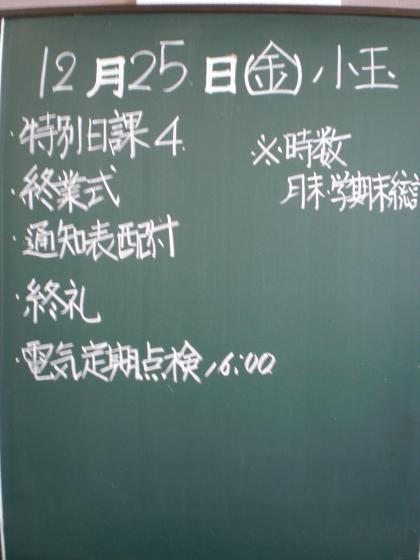 12月25日(金)小玉
・特別日課4
・終業式
・通知表配付
・終礼
・電気定期点検16:00
※時数
月末・学期末統計